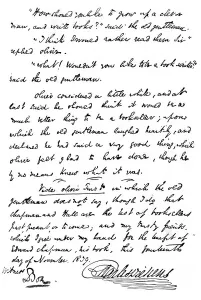 "How should you like to grow up a clever
man, and write books?" said the old gentleman.
"I think I would rather read them Sir"
replied Oliver.
"What! Wouldn't you like to be a book writer?"
said the old gentleman.
Oliver considered a little while, and at
last said he should think it would be a
much better thing to be a bookseller; upon
which the old gentleman laughed heartily, and
declared he had said a very good thing, which
Oliver felt glad to have done, though he
by no means knew what it was.
Oliver Twist in which the old
gentleman does not say, though I do, that
Chapman and Hall are the best of booksellers
past present or to come; and my
which I give under my hand for the benefit of
Edward Chapman, his book, this fourteenth
day of November 1839.
Charles Dickens